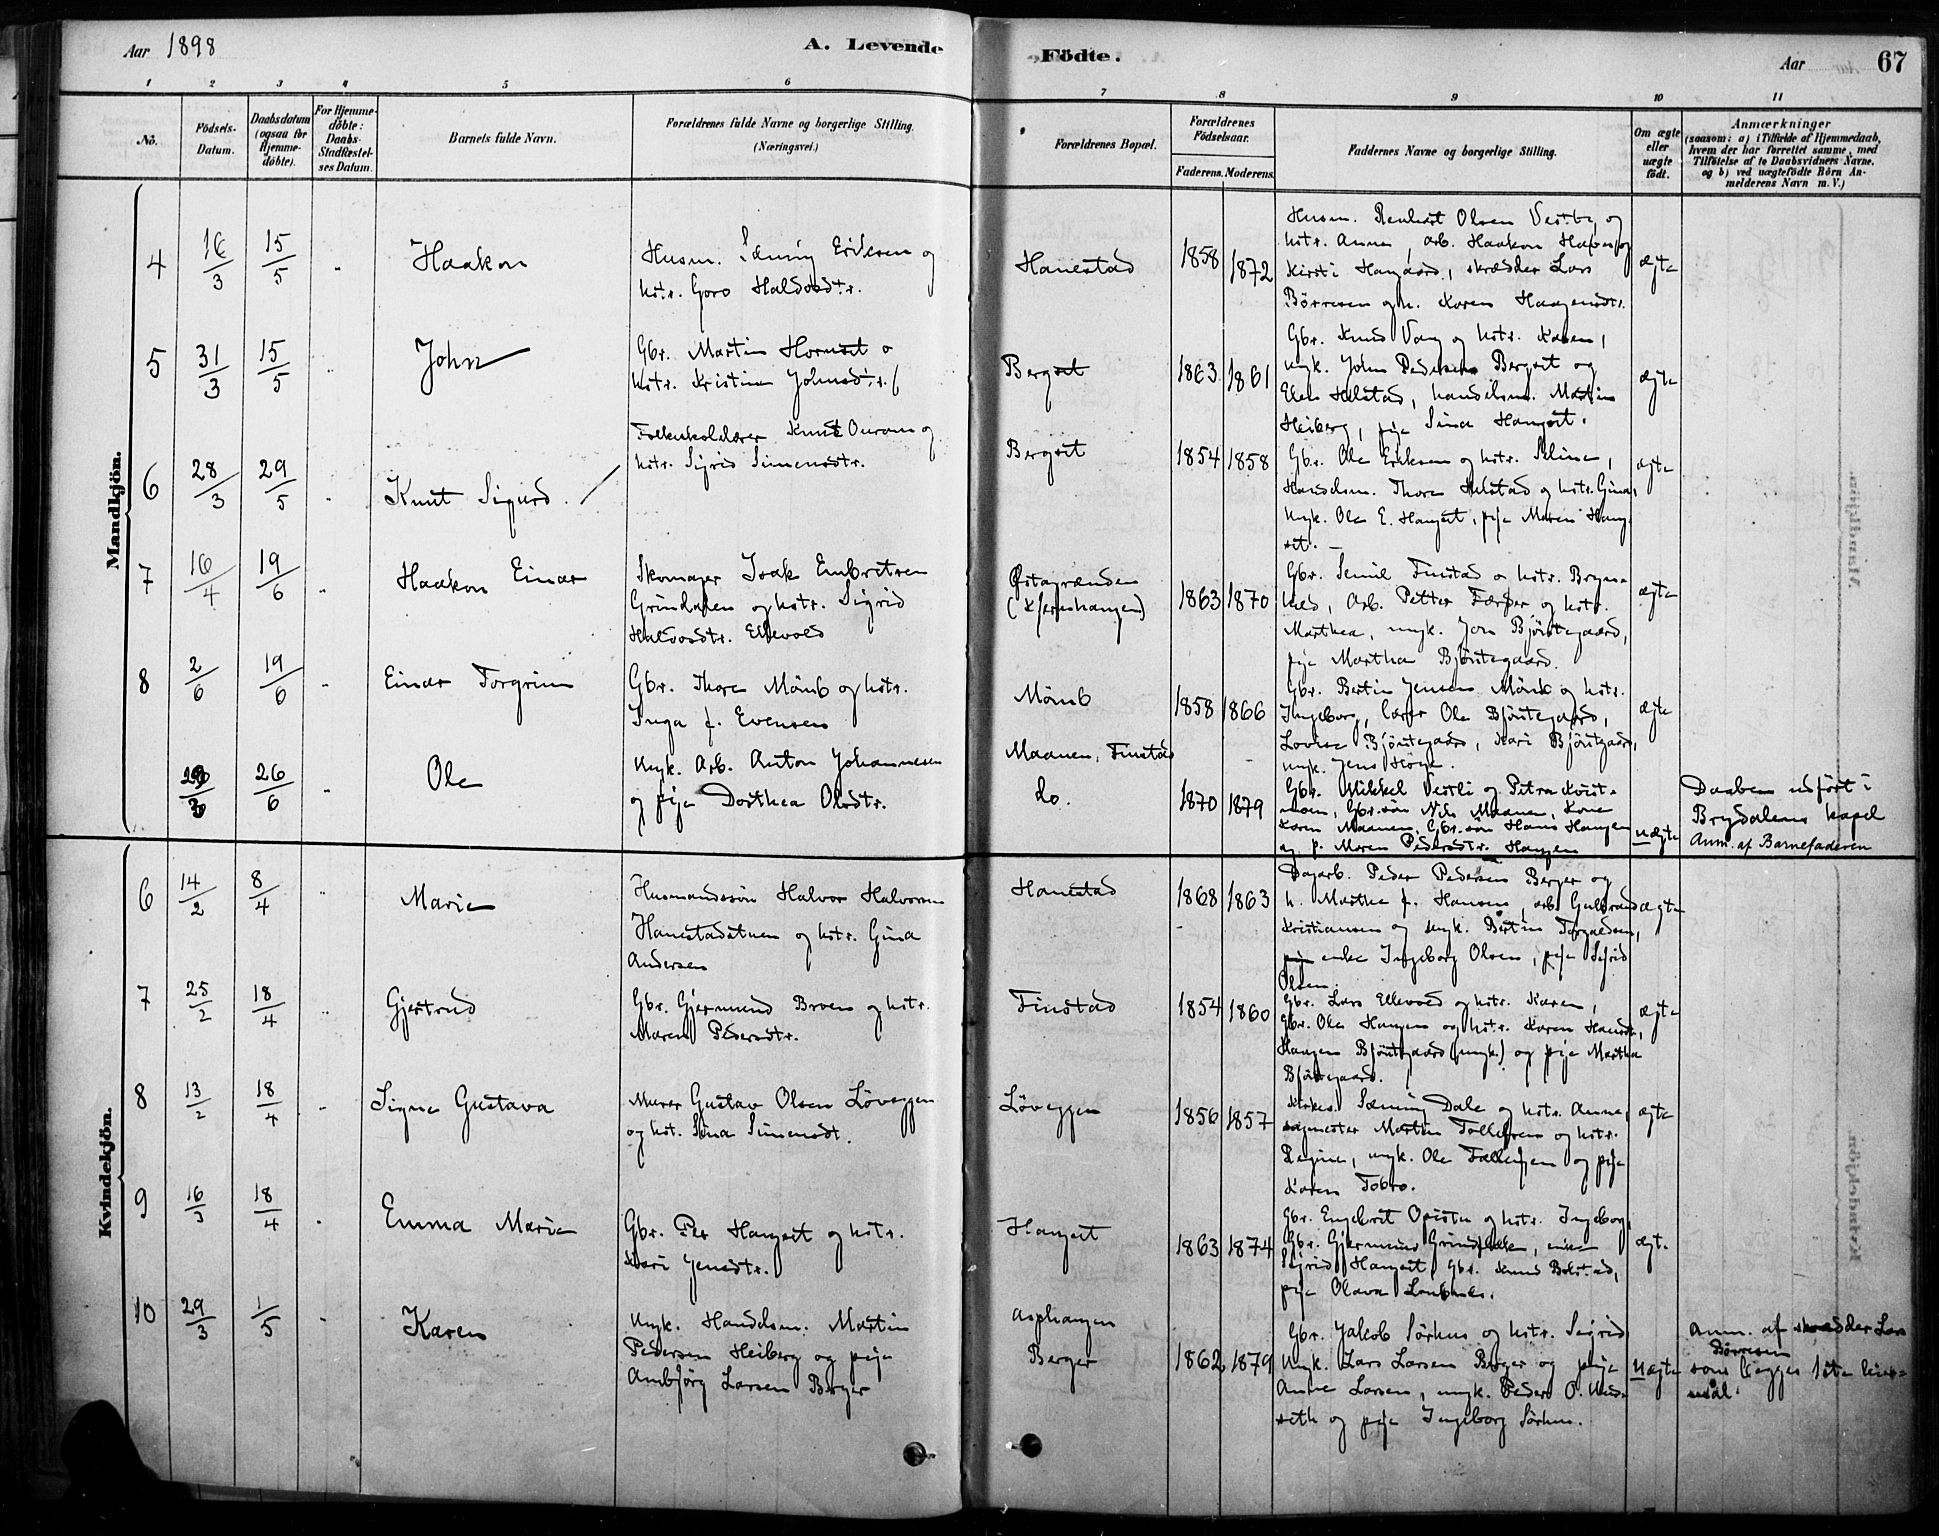 Aar 1898
A. Levende
Födte.
Aar
67
1 2 3 4 5 6 7 8 9 10 11
No.
Födsels-
Datum.
Daabsdatum
(ogsaa for
Hjemme-
döbte).
For Hjemme-
döbte:
Daabs-
Stadfæstel-
ses Datum.
Barnets fulde Navn.
Forældrenes fulde Navne og borgerlige Stilling.
(Næringsvei.)
Forældrenes Bopæl.
Forældrenes
Födselsaar.
Faderens. Moderens.
Faddernes Navne og borgerlige Stilling.
Om ægte
eller
uægte
født.
Anmærkninger
(saasom: a) i Tilfælde af Hjemmedaab,
hvem der har forrettet samme, med
Tilföielse af to Daabsvidners Navne,
og b) ved uægtefödte Börn An-
melderens Navn m. V.)
Mandkjön.
4
16/3
15/5
Haakon
Husm. Sæming Eriksen og
hstr. Goro Halvosdtr.
Hanestad
1858 1872
Husm. Olsen Vestby og
hstr. Anna, arb. Haakon
Kirsti Haugaard, skrædder Lars
Börresen og h. Karen Haagensdtr.
ægte
5
31/3
15/5
John
Gbr. Martin Hornset o
hstr. Kristine Johnsdtr.
Bergset
1863 1861
Gbr. Knud Vang og hstr. Karen,
ungk. John Pedersen Bergset og
Elen Helstad, handelsm. Martin
Heiberg, pige Sina Hangset.
ægte
6
28/3
29/5
Knut Sigurd.
Folkeskolelærer Knut Ouram og
hstr. Sigrid Simensdtr.
Bergset
1854 1858
Gbr. Ole Eriksen og hstr. Seline,
Handelsm. Thore Helstad og hstr. Gina,
ungk. Ole E. Hangset, pige Maren Hang-
set.
ægte
7
16/4
19/6
Haakon Einar
Skomager Isak Embretsen
Grindalen og hstr. Sigrid
Halvosdtr. Ellevold
Østagrænden
1863 1870
Gbr. Finstad o hstr. Bryn-
hild, Arb. Petter og hstr.
Marthea, ungk. Jon Bjöntegaard,
pige Martha Bjöntegaard.
ægte
8
2/6
19/6
Einar Torgrim
Gbr. Thore Mömb og hstr.
Inga f. Evensen
Mömb
1858 1866
Gbr. Bertin Jensen og hstr.
Ingeborg, lærer Ole Bjöntegaard,
Lovise Bjöntegaard, Kari Bjöntegaard,
ungk. Jens
ægte
26/6
Ole
Ungk. Arb. Anton Johannesen
og pige Dorthea Olsdtr.
Maanen, Finstad
do.
1870 1879
Gbr. Mikkel Vestli og Petra Kvist-
moen, Gbr.sön Nils Maanen, Kone
Karen Maanen, Gbr.sön Hans Haugen
og p. Maren Pedersdtr. Haugen
uægte
Daaben udfört i
Brydalens kapel
Anm. af Barnefaderen
Kvindekjön.
6
14/2
8/4
Marie
Husmandssön Halvor Halvorsen
Hanestadstuen og hstr. Gina
Andersen
Hanestad
1868 1863
Dagarb. Peder Pedersen Berger og
h. Marthe f. Hansen, arb. Gulbrand
Kristiansen og ungk. Bertin
enke Ingeborg Olsen, pige Sigrid
Olsen.
ægte
7
25/2
18/4
Gjertrud
Gbr. Gjermund Broen og hstr.
Maren Pedersdtr.
Finstad
1854 1860
Gbr. Lars Ellevold og hstr. Karen,
Gbr. Ole Haugen og hstr. Karen
Haagen Bjöntegaard (ungk.) og pige Martha
Bjöntegaard.
ægte
8
13/2
18/4
Signe Gustava
Murer Gustav Olsen Löveggen
og hst. Sina Simensdt.
Löveggen
1856 1857
Kirkes. Sæming Dale og hstr. Anne,
Martin Tollefsen og hstr.
Regine, ungk. Ole Tollefsen og pige
Karen Tobro.
ægte
9
16/3
18/4
Emma Marie
Gbr. Per Hangset og hstr.
Kari Jensdtr.
Hangset
1863 1874
Gbr. Engebret og hstr. Ingeborg,
Gbr. Gjermund enke
Sigrid Hangset, Gbr. Knud
pige Olava
ægt.
10
29/3
1/5
Karen
Ungk. Handelsm. Martin
Pedersen Heiberg og pige
Ambjörg Larsen Berger
Asphaugen
Berger
1862 1879
Gbr. Jakob Sörhus og hstr. Sigrid
Ungk. Lars Larsen Berger og pige
Anne Larsen, ungk. Peder O.
og pige Ingeborg Sörhus.
uægte
Anm. af skrædder Lars
Börresen
som begges 1ste leier-
maal.